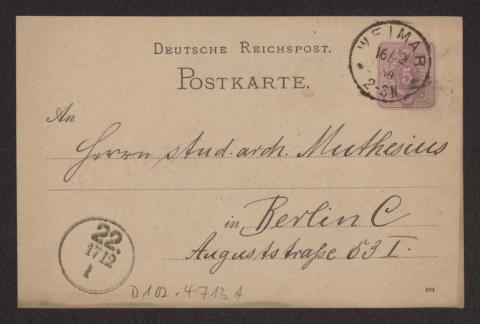 DEUTSCHE REICHSPOST.
POSTKARTE.
WEIMAR
2-3N
5
An
Herrn stud. arch. Muthesius
in Berlin C
Auguststraße 53 I.
22.
17 12
D 102 - 4713 A